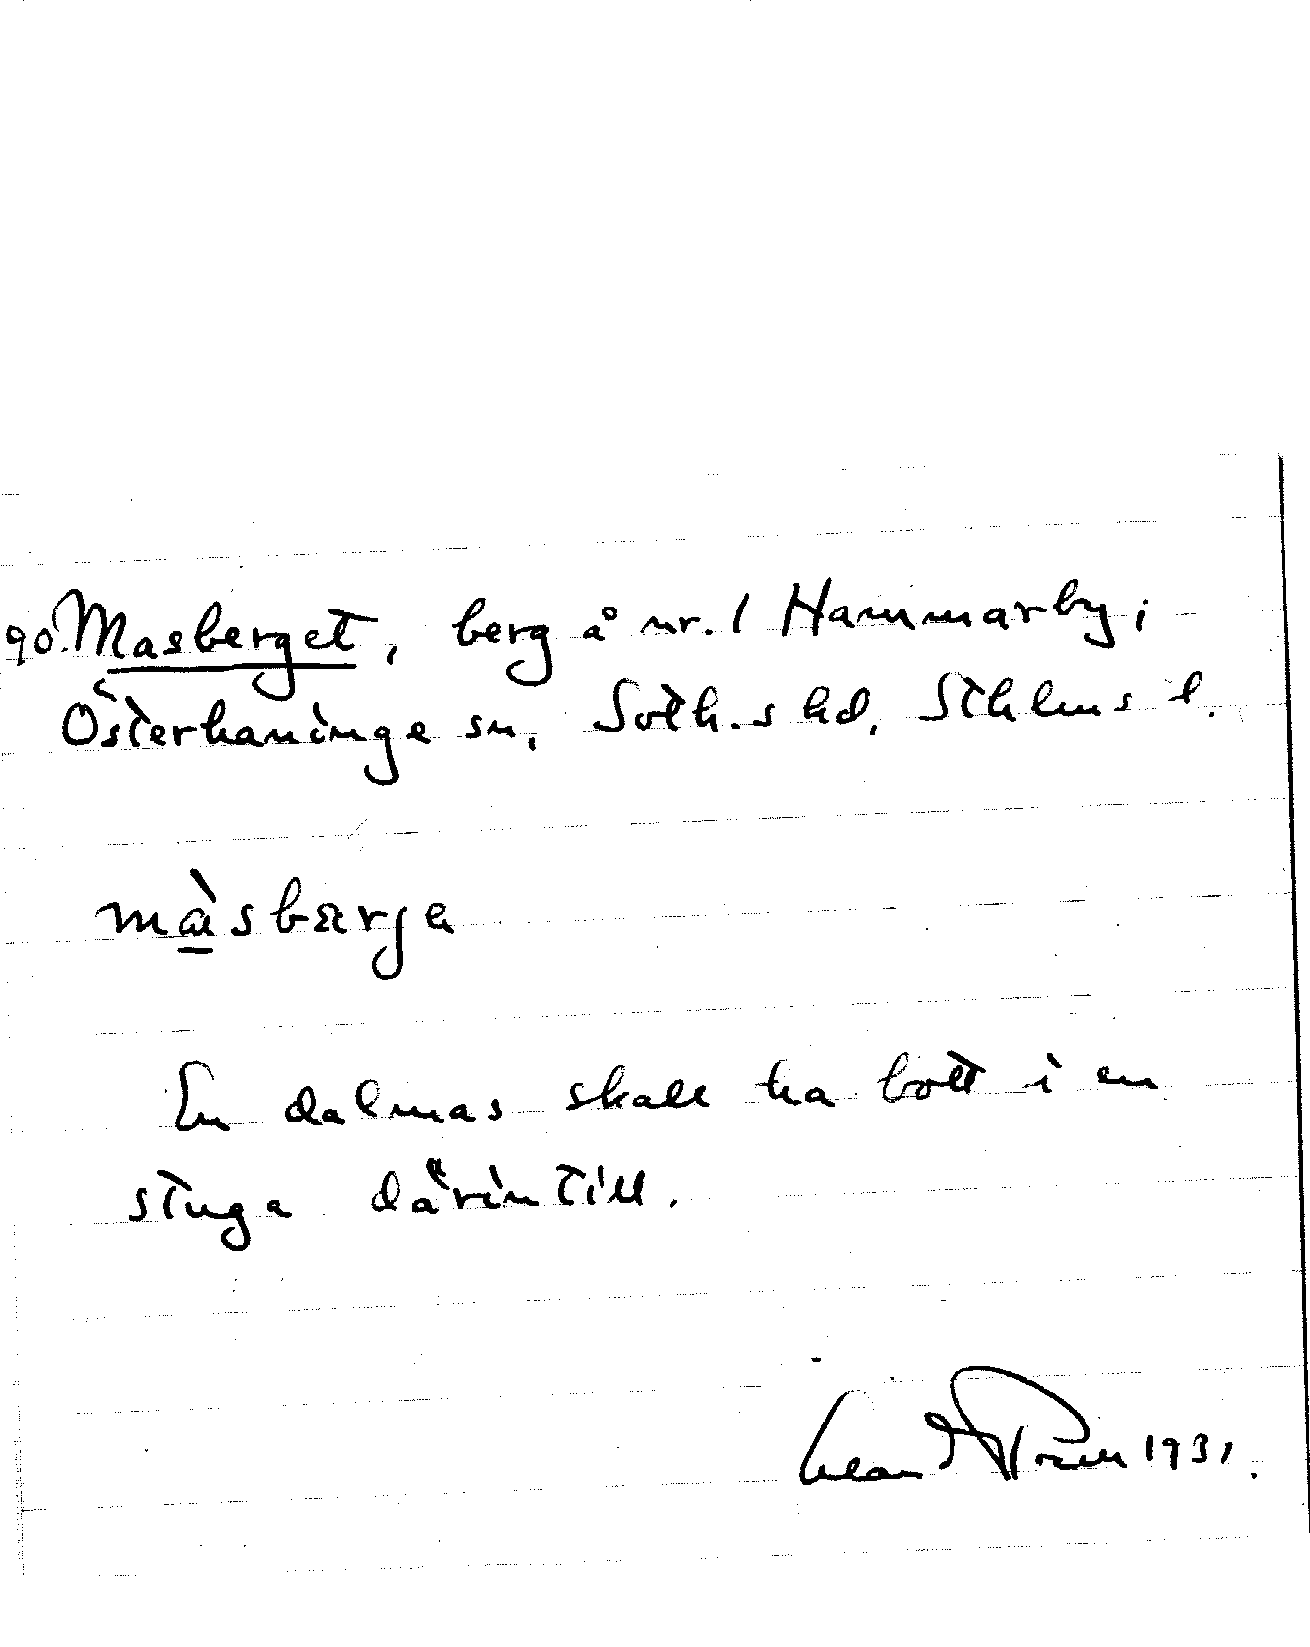 90. Masberget, berg å nr. 1 Hammarby,
Österhaninge sn, Soth.s hd, Sthlms l.
màsbærje
En dalmas skall ha bott i en
stuga därintill.
1931.